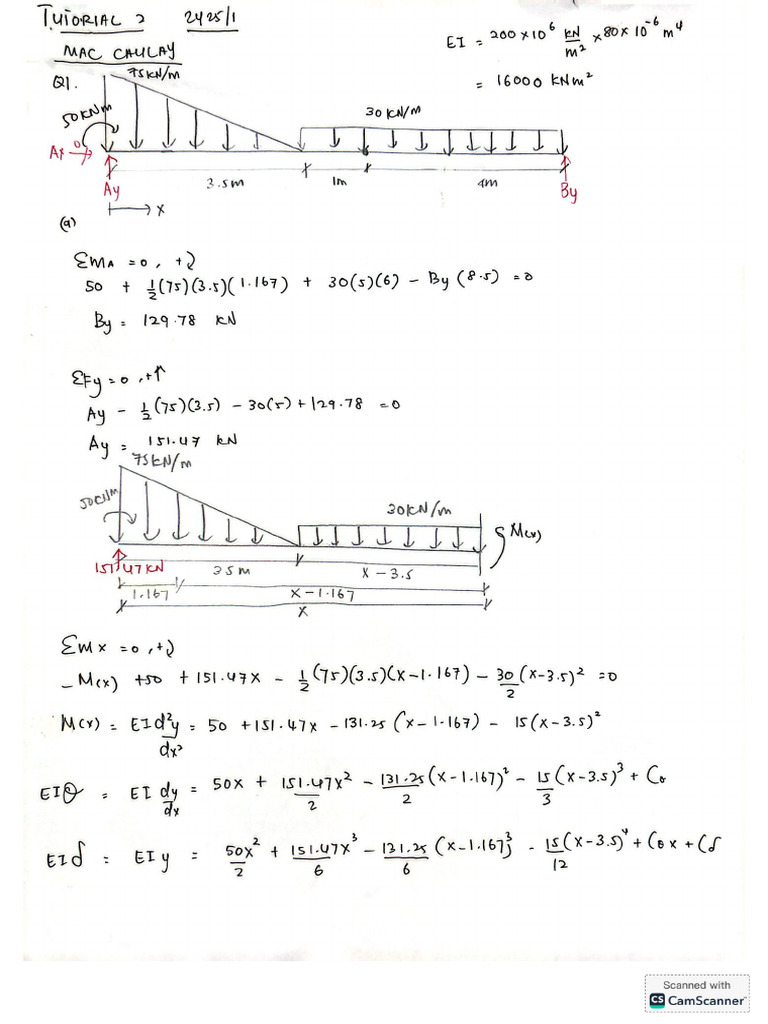 TUTORIAL 2 2425/1
MAC CAULAY
EI = 200 × 10⁶ kN/m² × 80 × 10⁻⁶ m⁴
= 16000 KNm²
Q1. 75KN/m
50KNM
30KN/M
Ax 0
3.5m 1m 4m
Ay By
x
(a)
ΣMA = 0, +↻
50 + ½(75)(3.5)(1.167) + 30(5)(6) - By(8.5) = 0
By = 129.78 KN
ΣFy = 0, +↑
Ay - ½(75)(3.5) - 30(5) + 129.78 = 0
Ay = 151.47 KN
75KN/M
50KNM
30KN/M
M(x)
151.47KN
3.5M x - 3.5
1.167 x - 1.167
x
ΣMx = 0, +↻
-M(x) + 50 + 151.47x - ½(75)(3.5)(x - 1.167) - 30/2 (x - 3.5)² = 0
M(x) = EI d²y/dx² = 50 + 151.47x - 131.25(x - 1.167) - 15(x - 3.5)²
EIθ = EI dy/dx = 50x + 151.47x²/2 - 131.25/2 (x - 1.167)² - 15/3 (x - 3.5)³ + Cθ
EIδ = EIy = 50x²/2 + 151.47x³/6 - 131.25/6 (x - 1.167)³ - 15/12 (x - 3.5)⁴ + Cθx + Cδ
Scanned with
CS CamScanner